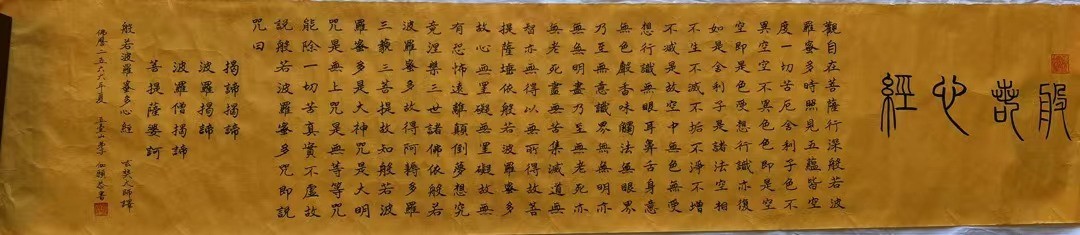 般若心經
觀自在菩薩行深般若波
羅蜜多時照見五蘊皆空
度一切苦厄舍利子色不
異空空不異色色即是空
空即是色受想行識亦復
如是舍利子是諸法空相
不生不滅不垢不淨不增
不減是故空中無色無受
想行識無眼耳鼻舌身意
無色聲香味觸法無眼界
乃至無意識界無無明亦
無無明盡乃至無老死亦
無老死盡無苦集滅道無
智亦無得以無所得故菩
提薩埵依般若波羅蜜多
故心無罣礙無罣礙故無
有恐怖遠離顛倒夢想究
竟涅槃三世諸佛依般若
波羅蜜多故得阿耨多羅
三藐三菩提故知般若波
羅蜜多是大神咒是大明
咒是無上咒是無等等咒
能除一切苦真實不虛故
說般若波羅蜜多咒即說
咒曰
揭諦揭諦
波羅揭諦
波羅僧揭諦
菩提薩婆訶
般若波羅蜜多心經 玄奘大師譯
佛曆二五六六年夏 恭書